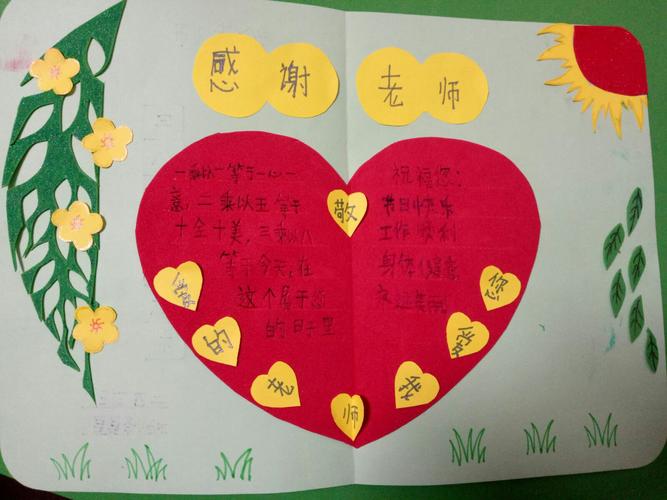 感谢 老师
一乘以一等于一心一
意，二乘以五等于
十全十美，三乘以八
等于今天，在
这个属于您
的日子里
祝福您：
节日快乐
工作顺利
身体健康
永远美丽
敬爱的老师我爱您